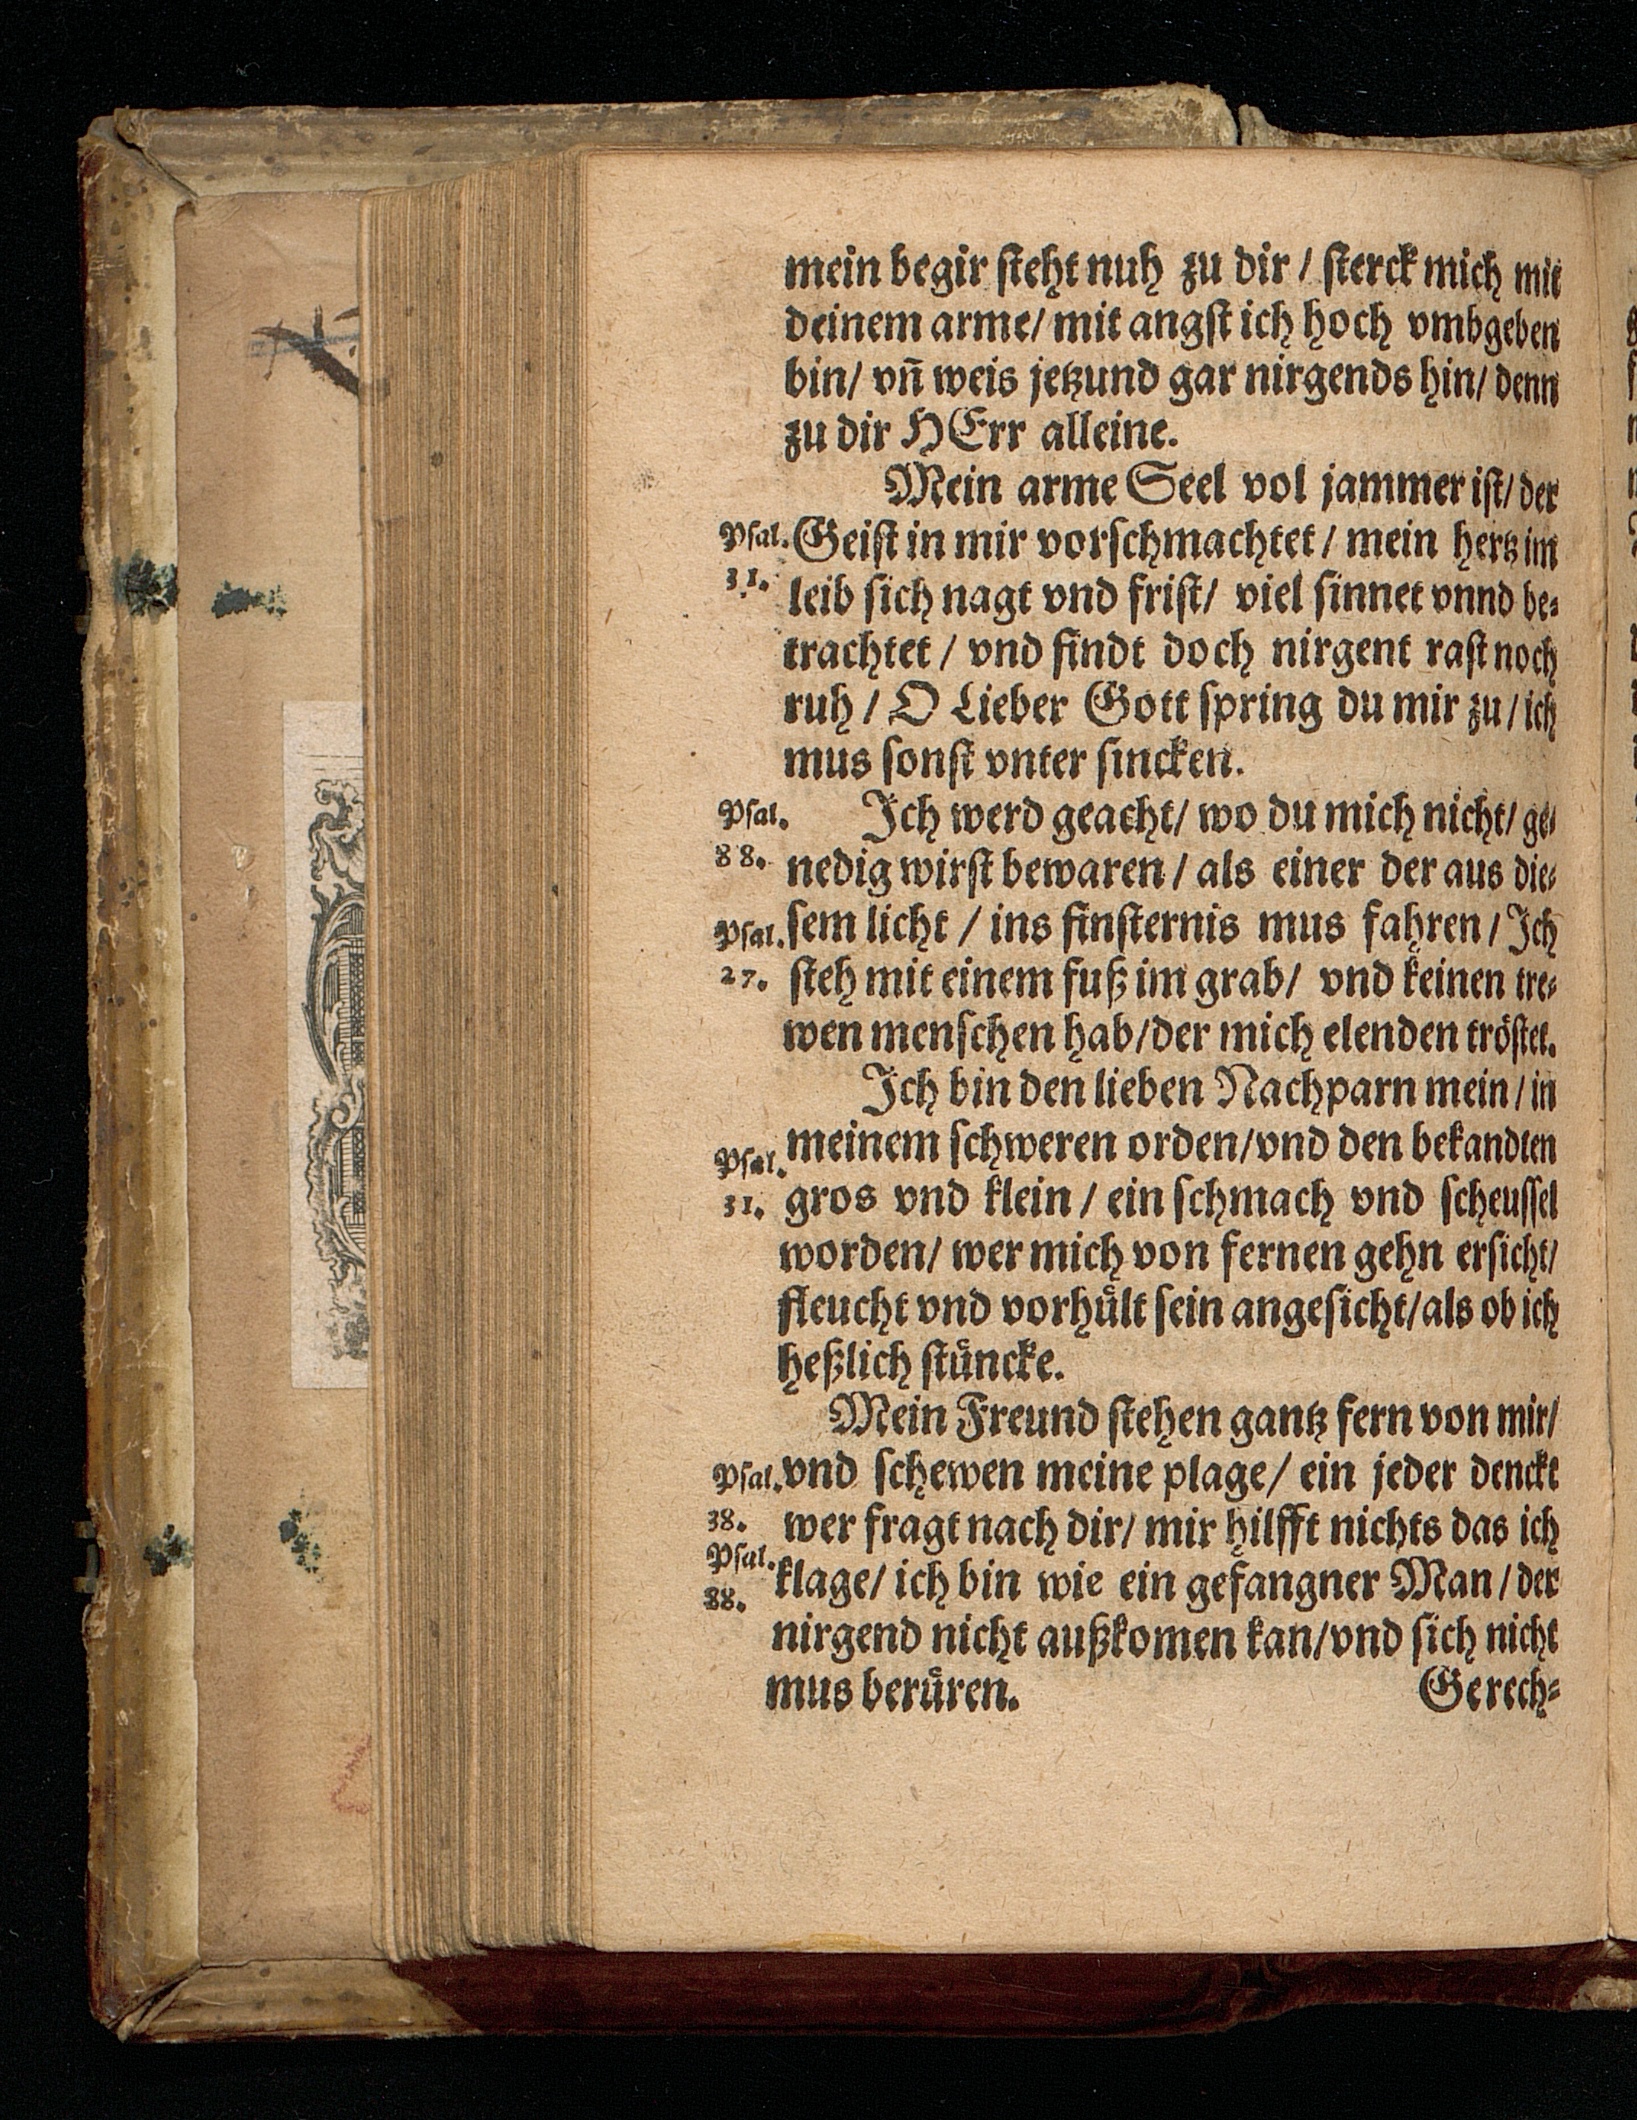 mein begir ſteht nuh zu dir / ſterck mich mit
deinem arme/ mit angſt ich hoch vmbgeben
bin/ vñ weis jetzund gar nirgends hin/ denn
zu dir HErr alleine.
Mein arme Seel vol jammer iſt/ der
Pſal. Geiſt in mir vorſchmachtet / mein hertz im
31. leib ſich nagt vnd friſt/ viel ſinnet vnnd be⸗
trachtet / vnd findt doch nirgent raſt noch
ruh / O Lieber Gott ſpring du mir zu / ich
mus ſonſt vnter ſincken.
Pſal. Ich werd geacht/ wo du mich nicht/ ge⸗
88. nedig wirſt bewaren / als einer der aus die⸗
Pſal. ſem licht / ins finſternis mus fahren / Ich
27. ſteh mit einem fuß im grab/ vnd keinen tre⸗
wen menſchen hab/der mich elenden tröſtet.
Ich bin den lieben Nachparn mein / in
Pſal. meinem ſchweren orden/vnd den bekandten
31. gros vnd klein / ein ſchmach vnd ſcheuſſel
worden/ wer mich von fernen gehn erſicht/
fleucht vnd vorhuͤlt ſein angeſicht/als ob ich
heßlich ſtuͤncke.
Mein Freund ſtehen gantz fern von mir/
Pſal. vnd ſchewen meine plage/ ein jeder denckt
38. wer fragt nach dir/ mir hilfft nichts das ich
Pſal. klage/ ich bin wie ein gefangner Man / der
88.
nirgend nicht außkomen kan/vnd ſich nicht
mus beruͤren. Gerech⸗